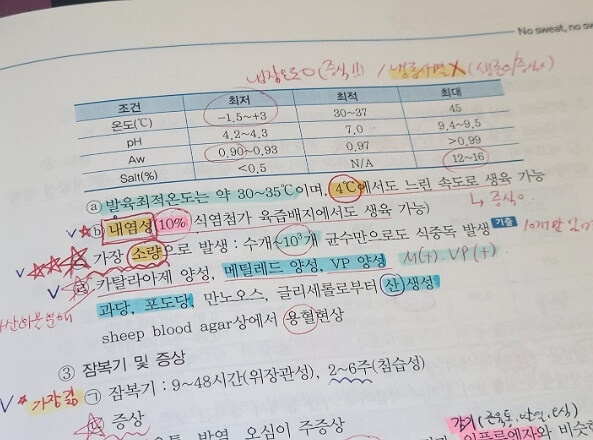 No sweat, no sw
냉장온도 O (증식!!) / 냉동사멸 X (생존O/증식x)
조건 최저 최적 최대
온도(℃) -1.5~+3 30~37 45
pH 4.2~4.3 7.0 9.4~9.5
Aw 0.90~0.93 0.97 >0.99
Salt(%) <0.5 N/A 12~16
ⓐ 발육최적온도는 약 30~35℃이며, 4℃에서도 느린 속도로 생육 가능
↳ 증식 O
ⓑ 내염성(10% 식염첨가 육즙배지에서도 생육 가능)
가장 소량으로 발생 : 수개~10³개 균수만으로도 식중독 발생 기출
카탈라아제 양성, 메틸레드 양성, VP 양성 M(+) VP(+)
과당, 포도당, 만노오스, 글리세롤로부터 산 생성
sheep blood agar상에서 용혈현상
③ 잠복기 및 증상
가장 긺 ㉠ 잠복기 : 9~48시간(위장관성), 2~6주(침습성)
증상
발열, 오심이 주증상
감기(근육통, 발열,
인플루엔자와 비슷한